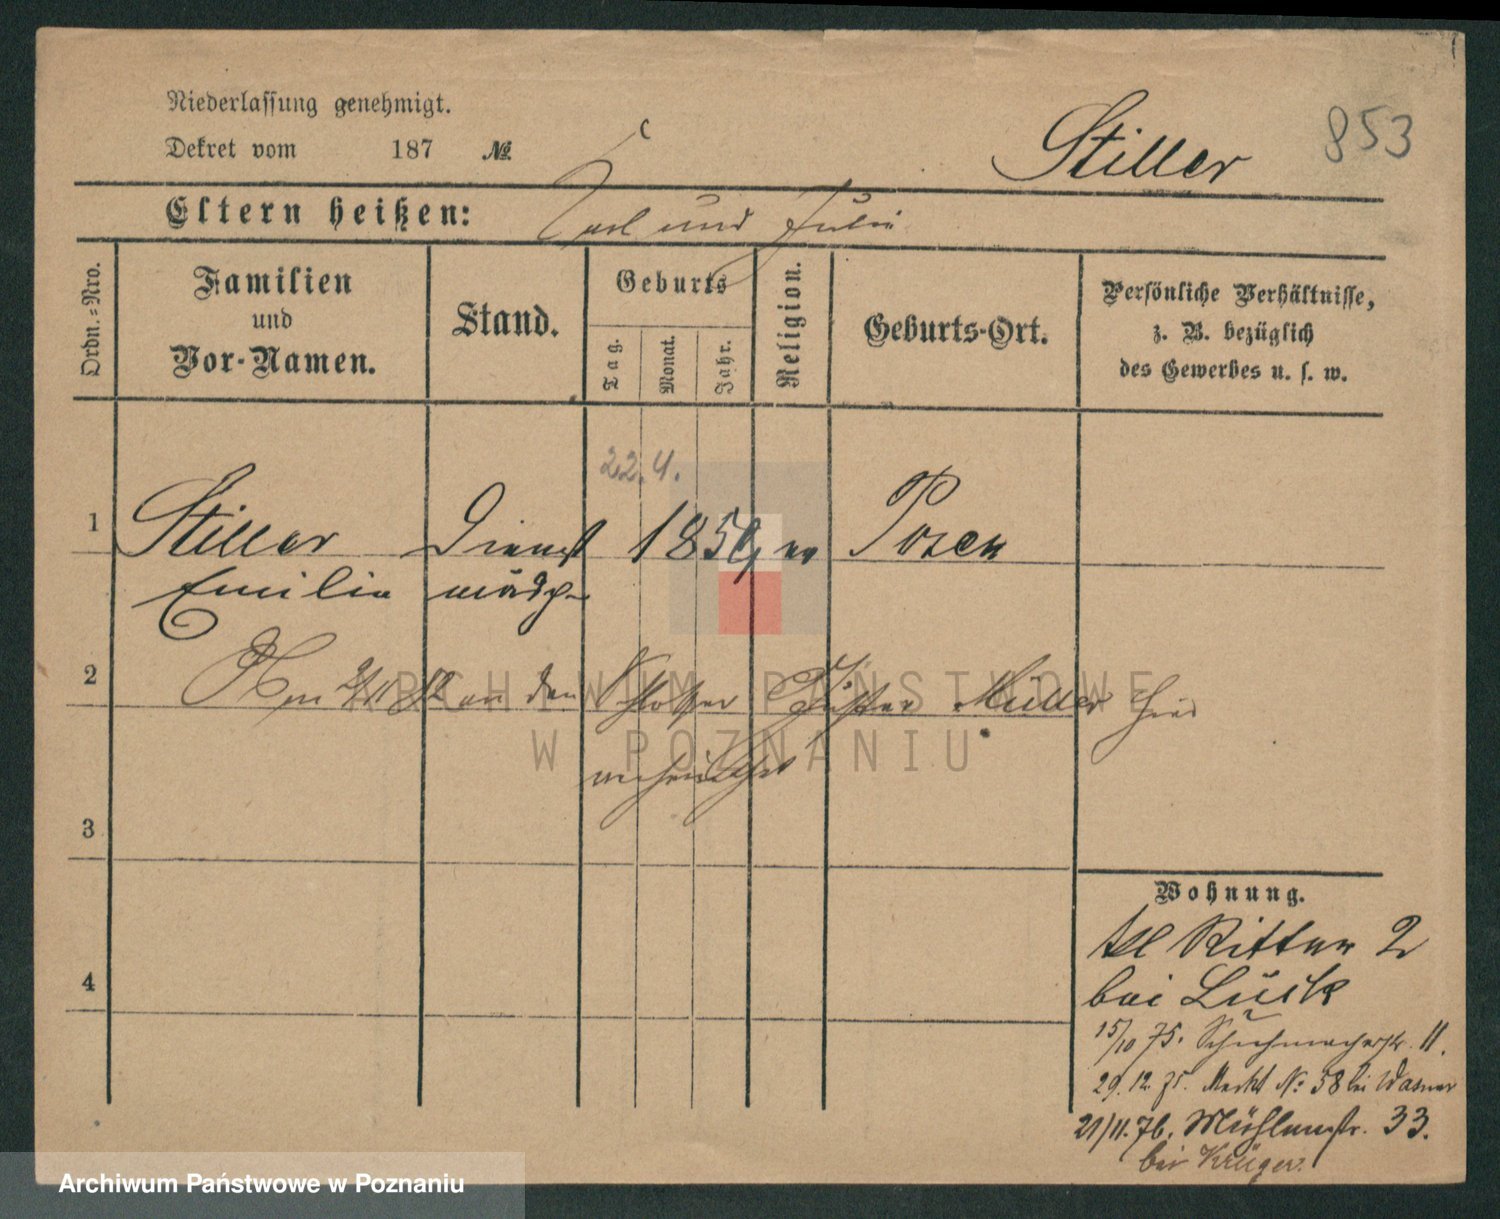 Niederlassung genehmigt.
Dekret vom 187 №
Stiller
853
Eltern heißen: Carl und Julie
Ordn.=Nro.
Familien
und
Vor-Namen.
Stand.
Geburts
Tag.
Monat.
Jahr.
Religion.
Geburts-Ort.
Persönliche Verhältnisse,
z. B. bezüglich
des Gewerbes u. s. w.
22.4.
1 Stiller Dienst 1859 ev Posen
Emilie mädch
2 Am den Schlosser Müller hier
verheirathet
3
4
Wohnung.
kl Ritterstr 2
bei Lück
15/10 75. Schuhmacherstr. 11.
29.12.75. Markt No 58 bei
21/11.76. Mühlenstr. 33.
bei Krüger.
ARCHIWUM PAŃSTWOWE
W POZNANIU
Archiwum Państwowe w Poznaniu